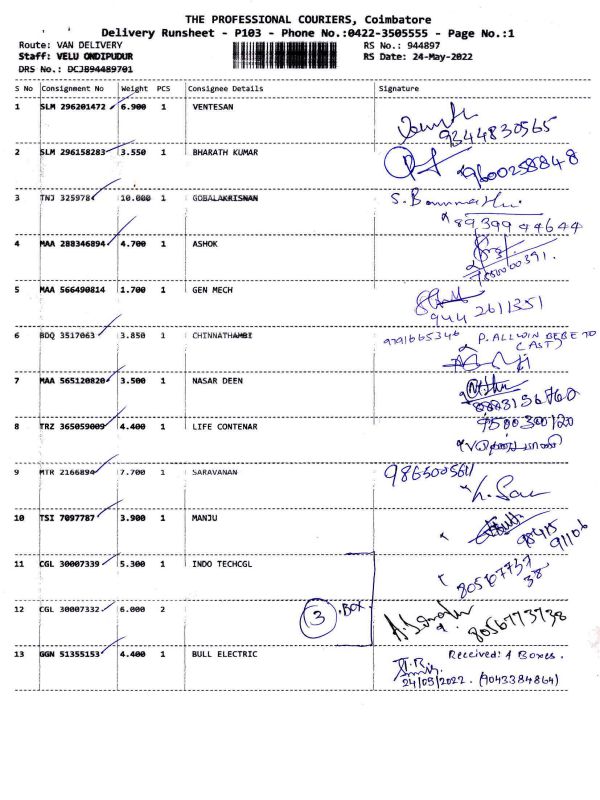 THE PROFESSIONAL COURIERS, Coimbatore
Delivery Runsheet - P103 - Phone No.:0422-3505555 - Page No.:1
Route: VAN DELIVERY RS No.: 944897
Staff: VELU ONDIPUDUR RS Date: 24-May-2022
DRS No.: DCJB94489701
S No Consignment No Weight PCS Consignee Details Signature
1 SLM 296201472 6.900 1 VENTESAN
9344830565
2 SLM 296158283 3.550 1 BHARATH KUMAR
9600258848
3 TNJ 325978 10.000 1 GOBALAKRISNAN S.
89399 44644
4 MAA 288346894 4.700 1 ASHOK
5 MAA 566490814 1.700 1 GEN MECH
944 2611351
6 BDQ 3517063 3.850 1 CHINNATHAMBI 9791665346 P. ALLWIN BEBETO
(AST)
7 MAA 565120820 3.500 1 NASAR DEEN
8883136760
8 TRZ 365059009 4.400 1 LIFE CONTENAR 9500300120
9 MTR 2166894 7.700 1 SARAVANAN 9865005611
10 TSI 7097787 3.900 1 MANJU
98415
91106
11 CGL 30007339 5.300 1 INDO TECHCGL
80567737
38
12 CGL 30007332 6.000 2 3 BOX.
8056773738
13 GGN 51355153 4.400 1 BULL ELECTRIC Received: 1 Boxes.
24/05/2022. (9043384864)